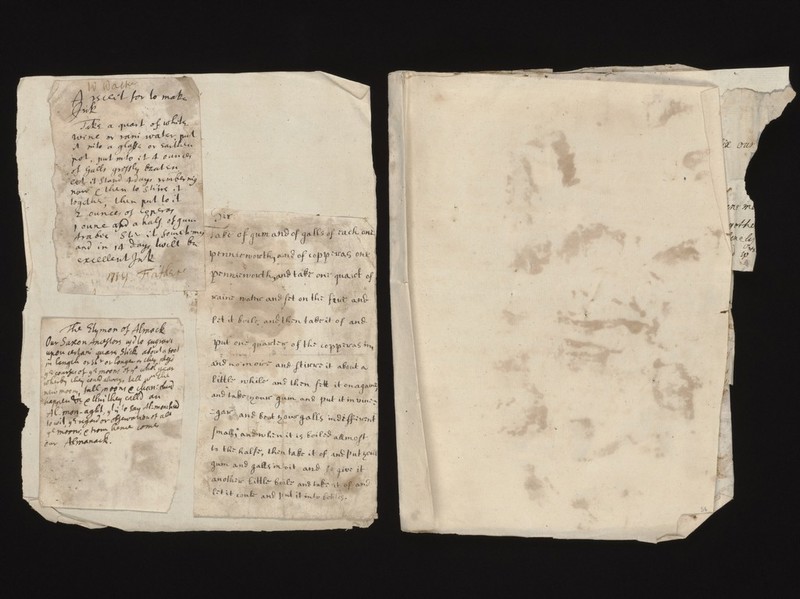 W
A receit for to make
Ink
Take a quart of white
wine or raini water, put
it into a glasse or earthen
pot, put into it 4 ounces
of Gauls grossly beaten
let it stand 4 days
now & then to stirre it
together, then put to it
2 ounces of coperos
1 ounce and a half of gum
arabec Stir it sometimes
and in 14 days twill be
excellent Ink
my Father
The Etymon of Almack
Our Saxon Ancestors
upon certain quare stick about a foot
in length or
ye courses of ye moons of ye whole year
whereby they could always tell wn the
new moons, full moons & changes
happen & this they called an
Al-mon-aght, yt is to say Al-moon-heed
to wit ye regard or observations of all
ye moons, & from hence come
our Almanack.
take of gum and of galls of each one
pennieworth, and of copperas one
pennieworth, and take one quart of
raine watter and set on the fire and
let it boile, and then take it of and
put one quarter of the copperas in,
and no more and stirre it about a
little while and then sett it on againe
and take your gum and put it in vine
=gar and beat your galls indifferent
small, and when it is boiled allmost
to the halfe, then take it of and put your
gum and galls in it and so give it
another little boile and take it of and
let it coole and put it into
our